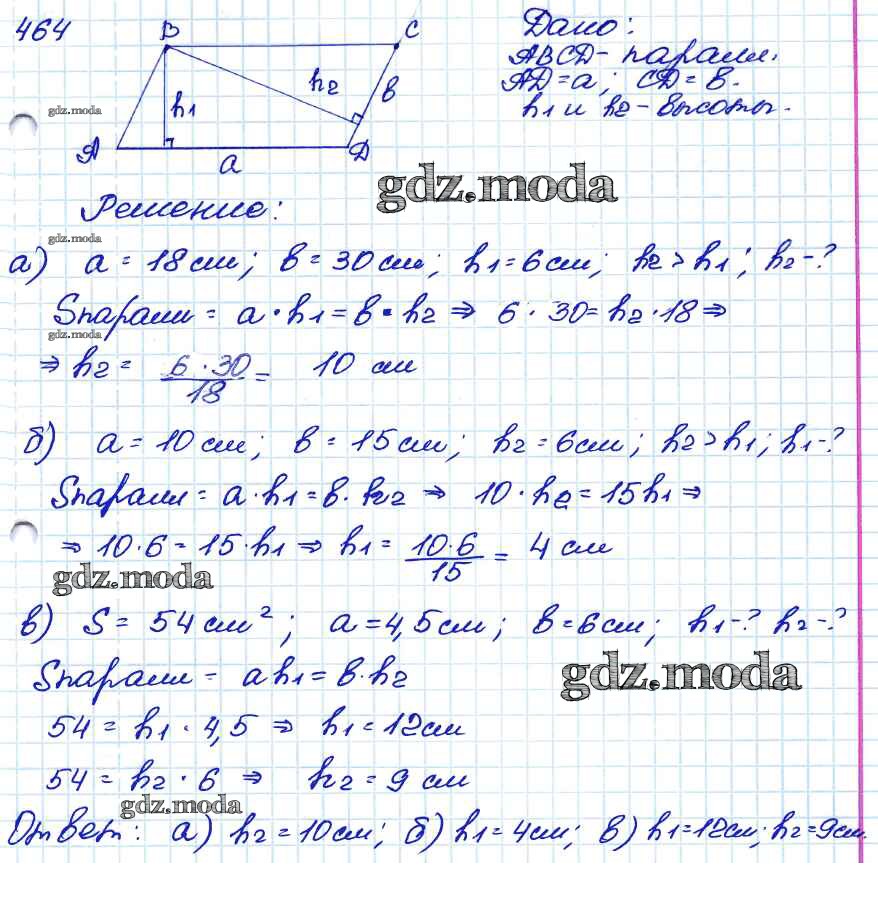 464
B
C
A
D
h1
h2
a
в
Дано:
ABCD - парали.
AD = a; CD = в.
h1 и h2 - высоты.
gdz.moda
gdz.moda
Решение:
gdz.moda
а) a = 18 см; в = 30 см; h1 = 6 см; h2 > h1; h2 - ?
Sпарами = a · h1 = в · h2 ⇒ 6 · 30 = h2 · 18 ⇒
gdz.moda
⇒ h2 = 6 · 30 / 18 = 10 см
б) a = 10 см; в = 15 см; h2 = 6 см; h2 > h1; h1 - ?
Sпарами = a · h1 = в · h2 ⇒ 10 · h2 = 15 h1 ⇒
⇒ 10 · 6 = 15 · h1 ⇒ h1 = 10 · 6 / 15 = 4 см
gdz.moda
в) S = 54 см²; a = 4,5 см; в = 6 см; h1 - ? h2 - ?
Sпарами = a h1 = в · h2
gdz.moda
54 = h1 · 4,5 ⇒ h1 = 12 см
54 = h2 · 6 ⇒ h2 = 9 см
gdz.moda
Ответ: а) h2 = 10 см; б) h1 = 4 см; в) h1 = 12 см; h2 = 9 см.